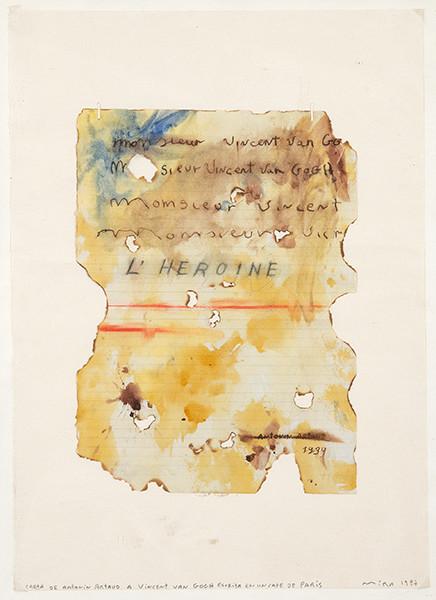 Monsieur Vincent Van Go
M sieur Vincent Van GOGH
Monsieur Vincent
Monsieur Vin
L' HEROINE
ANTONIN ARTAUD
1939
CARTA DE ANTONIN ARTAUD A VINCENT VAN GOGH ESCRITA EN UN CAFE DE PARIS
Mira 1987